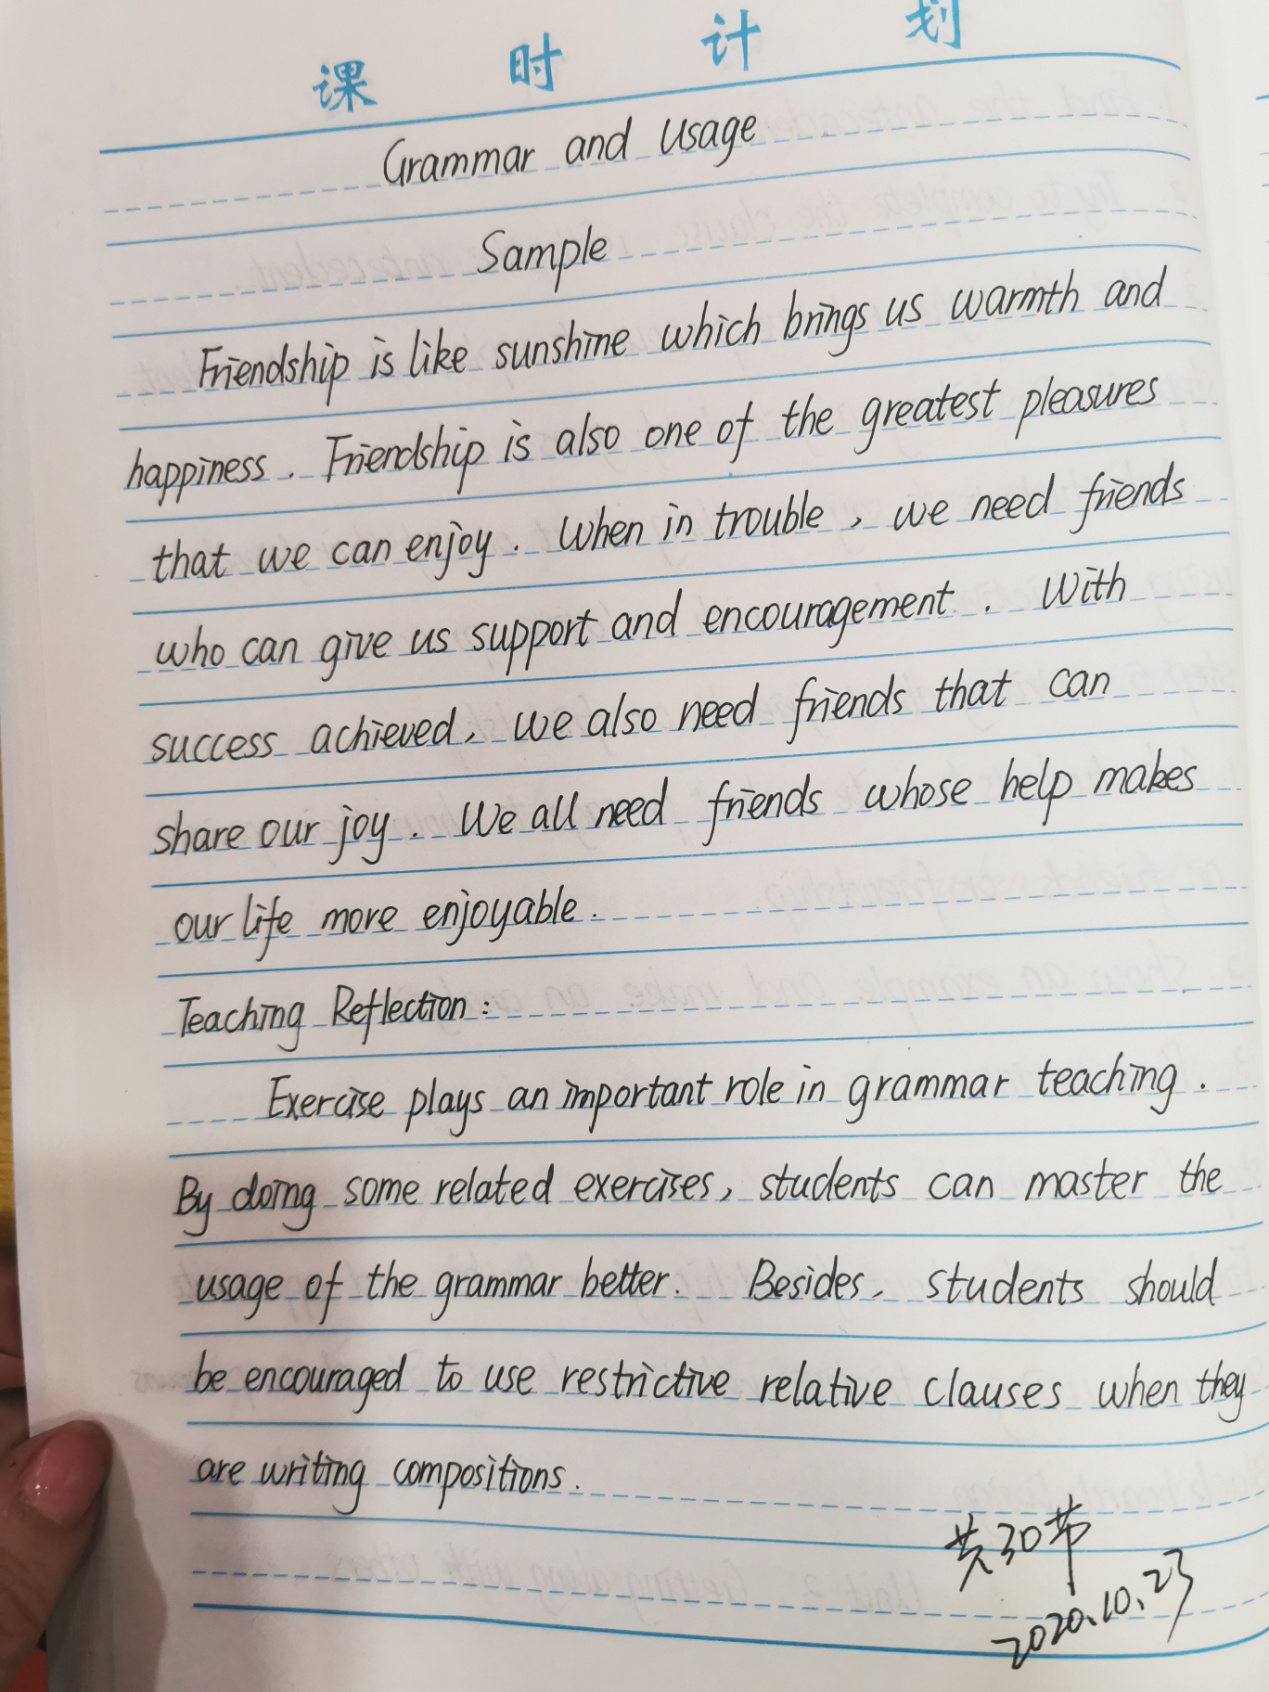 课时计划
Grammar and Usage
Sample
Friendship is like sunshine which brings us warmth and
happiness. Friendship is also one of the greatest pleasures
that we can enjoy. When in trouble, we need friends
who can give us support and encouragement. With
success achieved, we also need friends that can
share our joy. We all need friends whose help makes
our life more enjoyable.
Teaching Reflection:
Exercise plays an important role in grammar teaching.
By doing some related exercises, students can master the
usage of the grammar better. Besides, students should
be encouraged to use restrictive relative clauses when they
are writing compositions.
共30节
2020.10.23